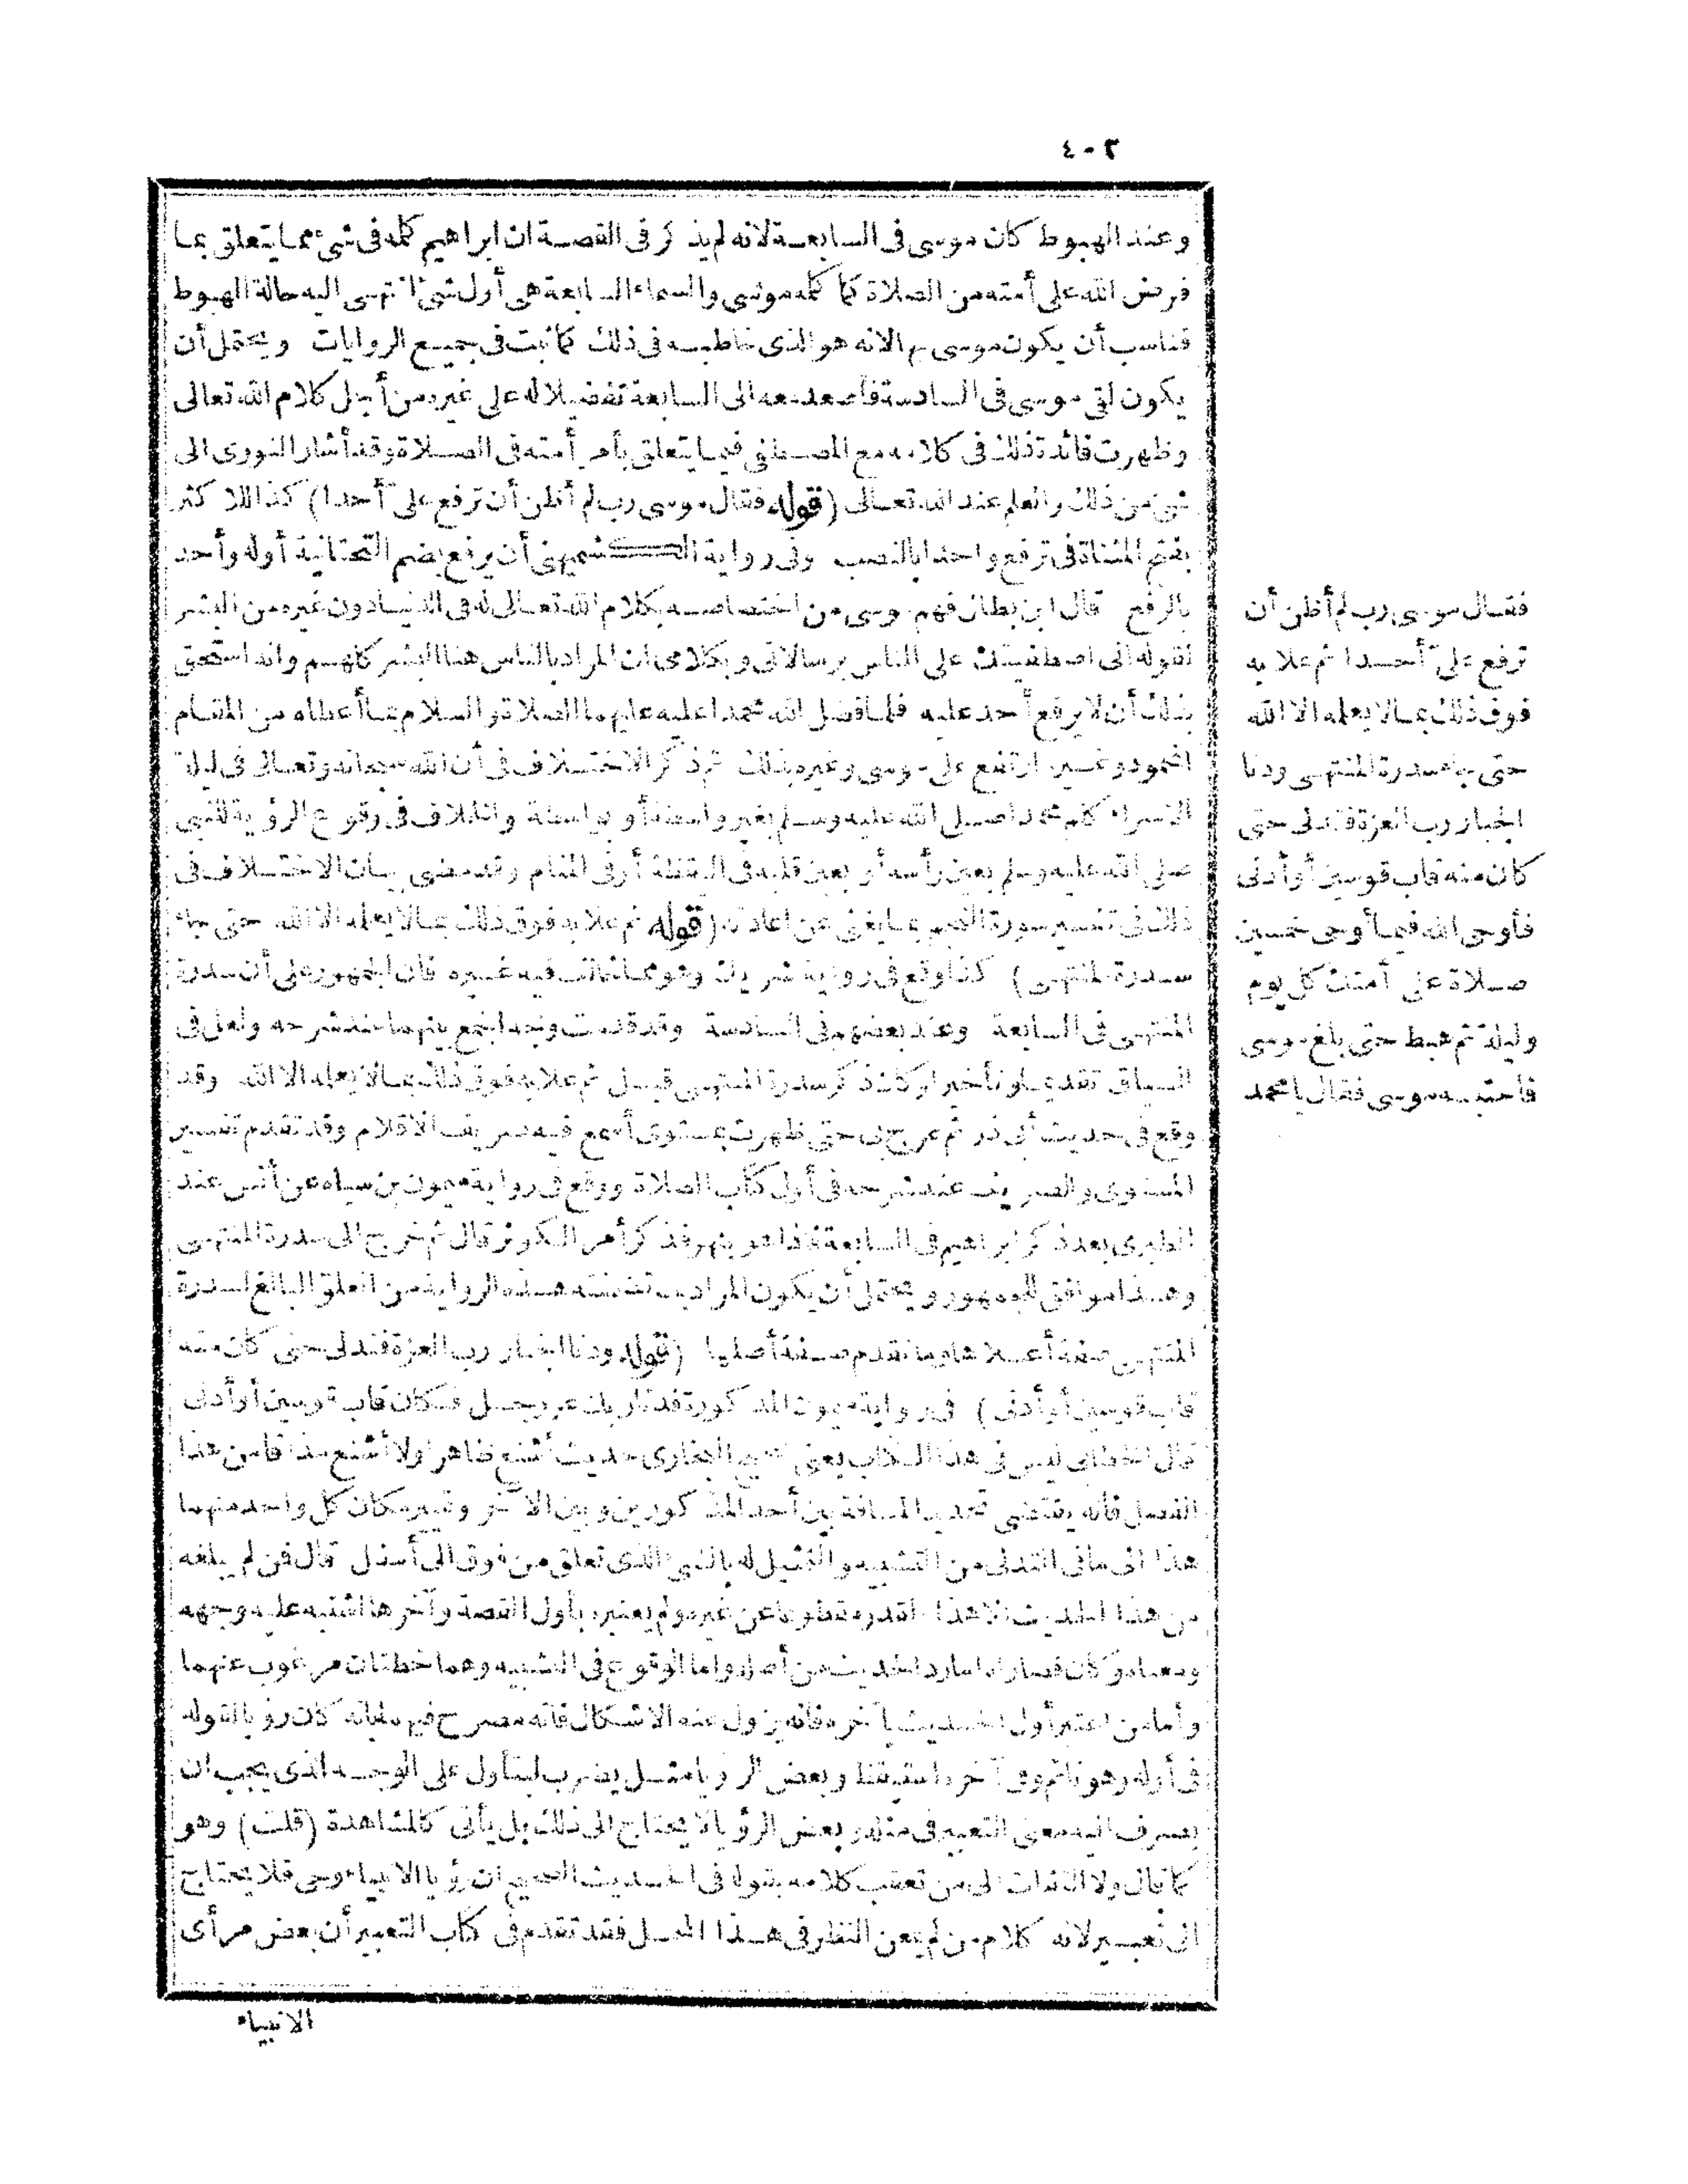 ٤٠٢
وعند الهبوط كان موسى فى السابعة لانه لم يذكر فى القصة ان ابراهيم كلمه فى شئ مما يتعلق بما
فرض الله على أمته من الصلاة كما كلمه موسى والسماء السابعة هى أول شئ انتهى اليه حالة الهبوط
فناسب أن يكون موسى بها لانه هو الذى خاطبه فى ذلك كما ثبت فى جميع الروايات ويحتمل أن
يكون لقى موسى فى السادسة فأصعد معه الى السابعة تفضيلا له على غيره من أجل كلام الله تعالى
وظهرت فائدة ذلك فى كلامه مع المصطفى فيما يتعلق بأمر أمته فى الصلاة وقد أشار النووى الى
شئ من ذلك والعلم عند الله تعالى (قوله فقال موسى رب لم أظن أن ترفع علىّ أحدا) كذا للاكثر
بفتح المثناة فى ترفع واحدا بالنصب وفى رواية الكشميهنى أن يرفع بضم التحتانية أوله وأحد
بالرفع قال ابن بطال فهم موسى من اختصاصه بكلام الله تعالى له فى الدنيا دون غيره من البشر
لقوله انى اصطفيتك على الناس برسالاتى وبكلامى ان المراد بالناس هنا البشر كلهم وانه استحق
بذلك أن لا يرفع أحد عليه فلما فضل الله محمدا عليه عليهما الصلاة والسلام بما أعطاه من المقام
المحمود وغيره ارتفع على موسى وغيره بذلك ثم ذكر الاختلاف فى أن الله سبحانه وتعالى فى ليلة
الاسراء كلم محمدا صلى الله عليه وسلم بغير واسطة أو بواسطة والخلاف فى وقوع الرؤية للنبى
صلى الله عليه وسلم بعين رأسه أو بعين قلبه فى اليقظة أو فى المنام وقد مضى بيان الاختلاف فى
ذلك فى تفسير سورة النجم بما يغنى عن اعادته (قوله ثم علا به فوق ذلك بما لا يعلمه الا الله حتى جاء
سدرة المنتهى) كذا وقع فى رواية شريك وهو مما خالف فيه غيره فان الجمهور على أن سدرة
المنتهى فى السابعة وعند بعضهم فى السادسة وقد قدمت وجه الجمع بينهما عند شرحه ولعل فى
السياق تقديما وتأخيرا وكان ذكر سدرة المنتهى قبل ثم علا به فوق ذلك بما لا يعلمه الا الله وقد
وقع فى حديث أبى ذر ثم عرج بى حتى ظهرت بمستوى أسمع فيه صريف الاقلام وقد تقدم تفسير
المستوى والصريف عند شرحه فى أول كتاب الصلاة ووقع فى رواية ميمون بن سياه عن أنس عند
الطبرى بعد ذكر ابراهيم فى السابعة فاذا هو بنهر فذكر أمر الكوثر قال ثم خرج الى سدرة المنتهى
وهذا موافق للجمهور ويحتمل أن يكون المراد بما تضمنته هذه الرواية من العلو البالغ لسدرة
المنتهى صفة أعلاها وما تقدم صفة أصلها (قوله ودنا الجبار رب العزة فتدلى حتى كان منه
قاب قوسين أو أدنى) فى رواية ميمون المذكورة فدنا ربك عز وجل فكان قاب قوسين أو أدنى
قال الخطابى ليس فى هذا الكتاب يعنى صحيح البخارى حديث أشنع ظاهرا ولا أشنع مذاقا من هذا
الفصل فانه يقتضى تحديد المسافة بين أحد المذكورين وبين الآخر وتمييز مكان كل واحد منهما
هذا الى ما فى التدلى من التشبيه والتمثيل له بالشئ الذى تعلق من فوق الى أسفل قال فمن لم يبلغه
من هذا الحديث الا هذا القدر مقطوعا عن غيره ولم يعتبره بأول القصة وآخرها اشتبه عليه وجهه
ومعناه وكان قصاراه اما رد الحديث من أصله واما الوقوع فى التشبيه وهما خطتان مرغوب عنهما
وأما من اعتبر أول الحديث بآخره فانه يزول عنه الاشكال فانه مصرح فيهما بانه كان رؤيا لقوله
فى أوله وهو نائم وفى آخره استيقظ وبعض الرؤيا مثل يضرب ليتأول على الوجه الذى يجب ان
يصرف اليه معنى التعبير فى مثله وبعض الرؤيا لا يحتاج الى ذلك بل يأتى كالمشاهدة (قلت) وهو
كما قال ولا التفات الى من تعقب كلامه بقوله فى الحديث الصحيح ان رؤيا الانبياء وحى فلا يحتاج
الى تعبير لانه كلام من لم يمعن النظر فى هذا المحل فقد تقدم فى كتاب التعبير أن بعض مرأى
الانبياء
فقال موسى رب لم أظن أن
ترفع علىّ أحدا ثم علا به
فوق ذلك بما لا يعلمه الا الله
حتى جاء سدرة المنتهى ودنا
الجبار رب العزة فتدلى حتى
كان منه قاب قوسين أو أدنى
فأوحى الله فيما أوحى خمسين
صلاة على أمتك كل يوم
وليلة ثم هبط حتى بلغ موسى
فاحتبسه موسى فقال يا محمد